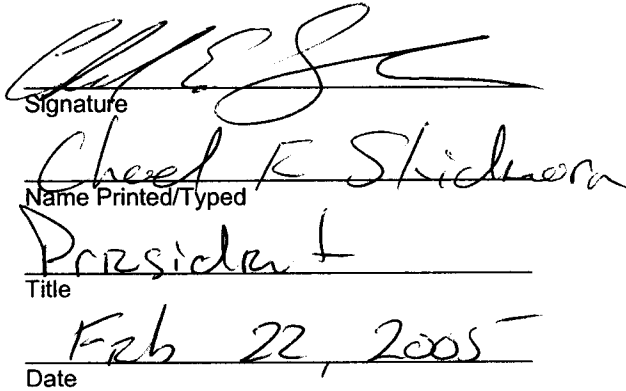 Signature
Chad E Skidmore
Name Printed/Typed
President
Title
Feb 22, 2005
Date